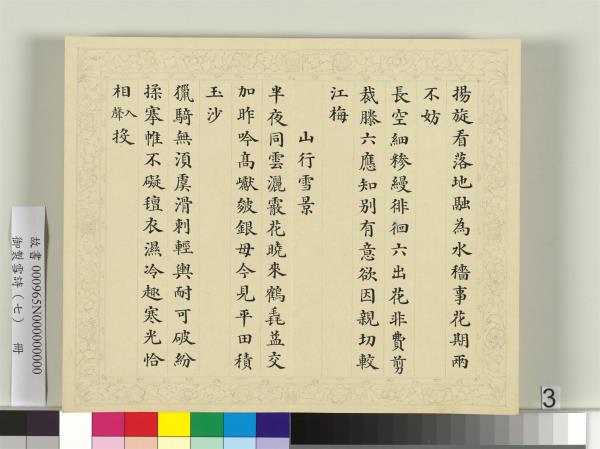 揚旋看落地融為水穡事花期兩
不妨
長空細糝縵徘徊六出花非費剪
裁滕六應知別有意欲因親切較
江梅
山行雪景
半夜同雲灑霰花曉來鶴毳益交
加昨吟高巘皴銀母今見平田積
玉沙
獵騎無須虞滑刺輕輿耐可破紛
揉搴帷不礙氊衣濕冷趣寒光恰
相入聲投
故書 000965N000000000
御製雪詩（七） 冊
3